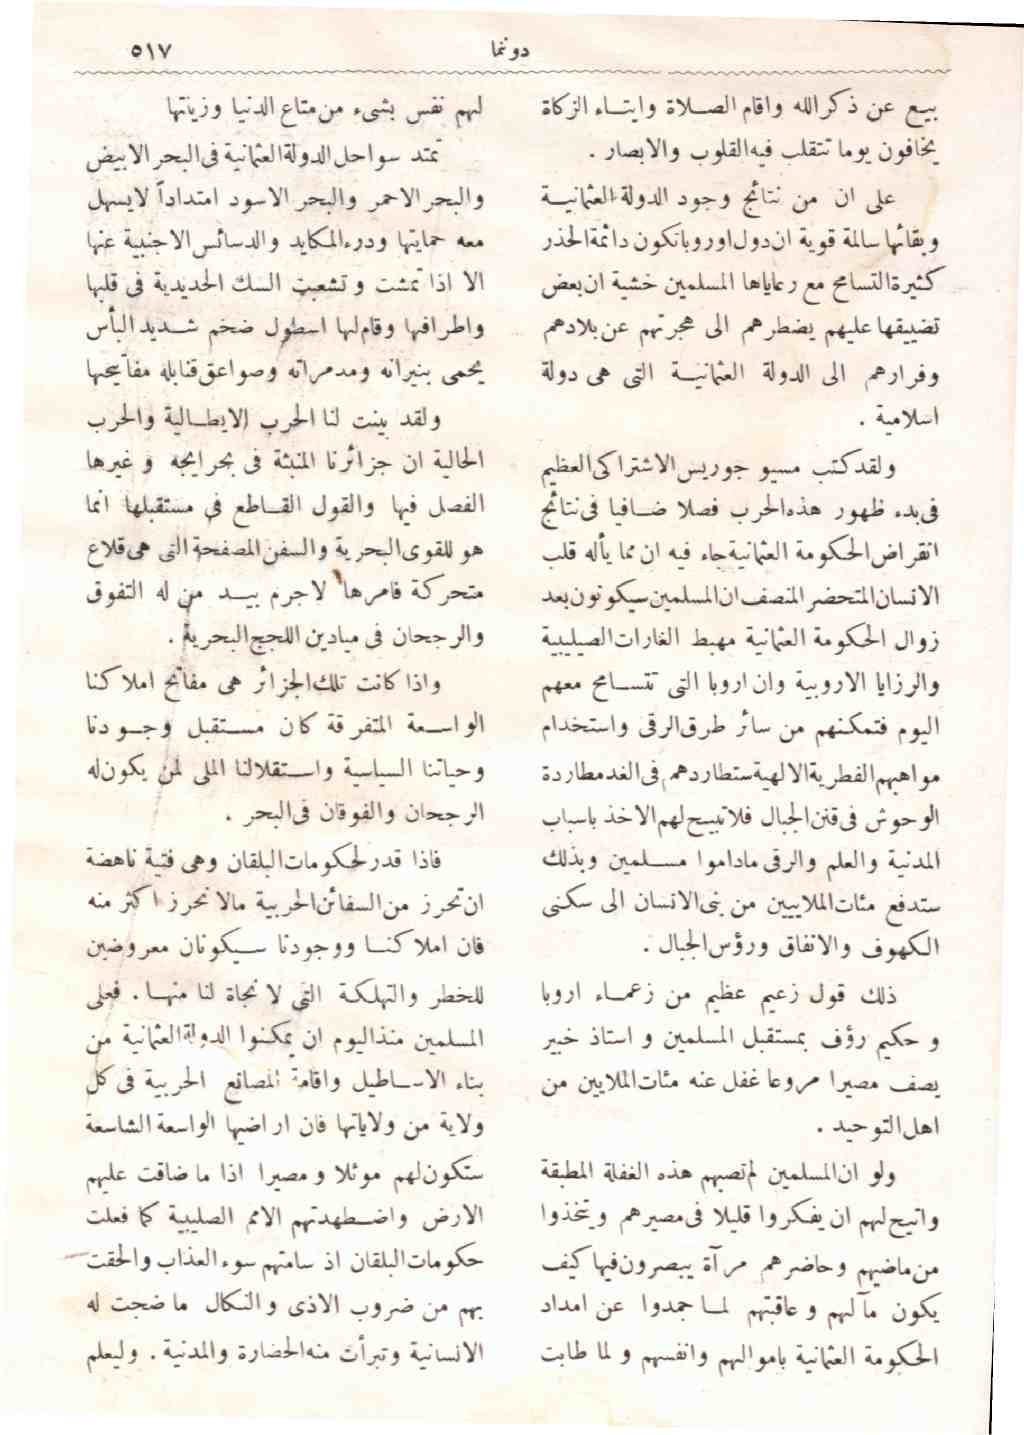 دونما
٥١٧
بيع عن ذكر الله واقام الصلاة وايتاء الزكاة
يخافون يوما تتقلب فيه القلوب والابصار .
على ان من نتائج وجود الدولة العثمانية
وبقائها سالمة قوية ان دول اوروبا تكون دائمة الحذر
كثيرة التسامح مع رعاياها المسلمين خشية ان بعض
تضييقها عليهم يضطرهم الى هجرتهم عن بلادهم
وفرارهم الى الدولة العثمانية التى هى دولة
اسلامية .
ولقد كتب مسيو جوريس الاشتراكى العظيم
فى بدء ظهور هذه الحرب فصلا ضافيا فى نتائج
انقراض الحكومة العثمانية جاء فيه ان مما يأله قلب
الانسان المتحضر المنصف ان المسلمين سيكونون بعد
زوال الحكومة العثمانية مهبط الغارات الصليبية
والرزايا الاروبية وان اروبا التى تتسامح معهم
اليوم فتمكنهم من سائر طرق الرقى واستخدام
مواهبهم الفطرية الالهية ستطاردهم فى الغد مطاردة
الوحوش فى قنن الجبال فلا تبيح لهم الاخذ باسباب
المدنية والعلم والرقى ماداموا مسلمين وبذلك
ستدفع مئات الملايين من بنى الانسان الى سكنى
الكهوف والانفاق ورؤس الجبال .
ذلك قول زعيم عظيم من زعماء اروبا
و حكيم رؤف بمستقبل المسلمين و استاذ خبير
يصف مصيرا مروعا غفل عنه مئات الملايين من
اهل التوحيد .
ولو ان المسلمين لم تصبهم هذه الغفلة المطبقة
واتيح لهم ان يفكروا قليلا فى مصيرهم ويتخذوا
من ماضيهم وحاضرهم مرآة يبصرون فيها كيف
يكون مآلهم و عاقبتهم لما جمدوا عن امداد
الحكومة العثمانية باموالهم وانفسهم و لما طابت
لهم نفس بشىء من متاع الدنيا وزينتها
تمتد سواحل الدولة العثمانية فى البحر الابيض
والبحر الاحمر والبحر الاسود امتداداً لايسهل
معه حمايتها ودرء المكايد والدسائس الاجنبية عنها
الا اذا تمشت و تشعبت السكك الحديدية فى قلبها
واطرافها وقام لها اسطول ضخم شديد البأس
يحمى بنيرانه ومدمراته وصواعق قنابله مفاتيحها
ولقد بينت لنا الحرب الايطالية والحرب
الحالية ان جزائرنا المنبثة فى بحر ايجه و غيرها
الفصل فيها والقول القاطع فى مستقبلها انما
هو للقوى البحرية والسفن المصفحة التى هى قلاع
متحركة فامرها لاجرم بيد من له التفوق
والرجحان فى ميادين اللجج البحرية .
واذا كانت تلك الجزائر هى مفاتح املاكنا
الواسعة المتفرقة كان مستقبل وجودنا
وحياتنا السياسية واستقلالنا الملى لمن يكون له
الرجحان والفوقان فى البحر .
فاذا قدر لحكومات البلقان وهى فتية ناهضة
ان تحرز من السفائن الحربية مالا نحرز اكثر منه
فان املاكنا ووجودنا سيكونان معروضين
للخطر والتهلكة التى لا نجاة لنا منها . فعلى
المسلمين منذ اليوم ان يمكنوا الدولة العثمانية من
بناء الاساطيل واقامة المصانع الحربية فى كل
ولاية من ولاياتها فان اراضيها الواسعة الشاسعة
ستكون لهم موئلا و مصيرا اذا ما ضاقت عليهم
الارض واضطهدتهم الامم الصليبية كما فعلت
حكومات البلقان اذ سامتهم سوء العذاب والحقت
بهم من ضروب الاذى والنكال ما ضجت له
الانسانية وتبرأت منه الحضارة والمدنية . وليعلم